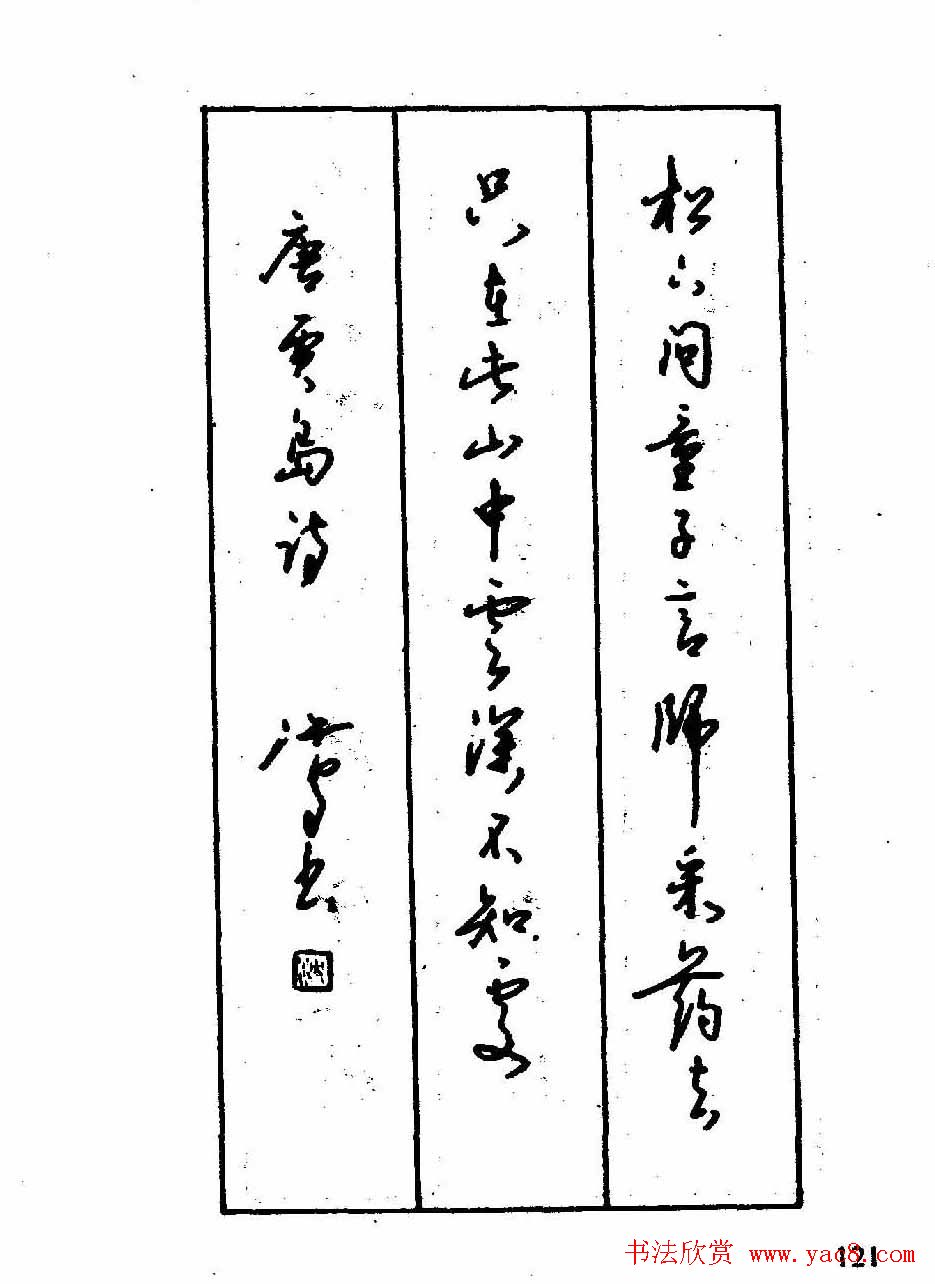 松下问童子言師采药去
只在此山中雲深不知處
唐贾島诗 书
121
书法欣赏 www.yac8.com